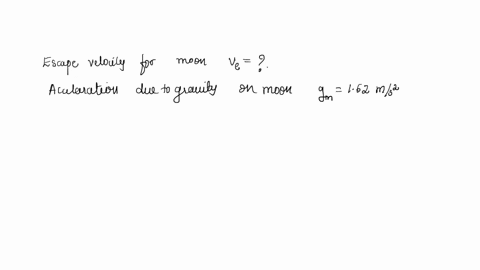 Escape velocity for moon vₑ = ?.
Aculeration due to gravity on moon gₘ = 1.62 m/s²